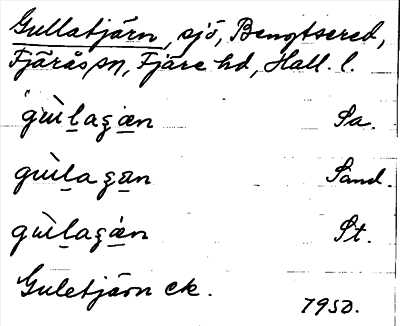 Gullatjärn, sjö, Bengtsered,
Fjärås sn, Fjäre hd, Hall. l.
gùlaʂæn Sa.
gùlaʂan Sand.
gùlaʂæ̀n St.
Guletjärn ek.
1950.